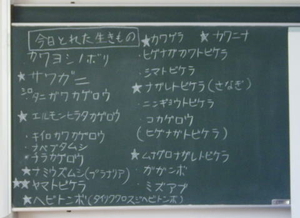 今日とれた生きもの
カワヨシノボリ
★サワガニ
タニガワカゲロウ
★エルモンヒラタカゲロウ
キイロカワカゲロウ
ナベブタムシ
チラカゲロウ
★ナミウズムシ(プラナリア)
★★ヤマトビケラ
★ヘビトンボ(タイリククロスジヘビトンボ)
★カワゲラ ★カワニナ
・ヒゲナガカワトビケラ
・シマトビケラ
★ナガレトビケラ(さなぎ)
・ニンギョウトビケラ
・コカゲロウ
(ヒゲナガトビケラ)
★ムナグロナガレトビケラ
・ガガンボ
・ミズアブ